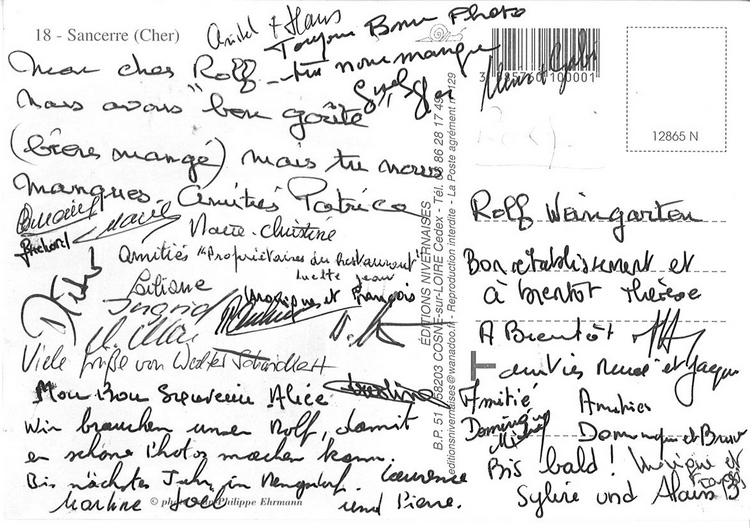 18 - Sancerre (Cher)
+ Hans
Toujours Bonne Photo
Mon cher Rolf - tu nous manque
nous avons "bon goûté
(bien mangé) mais tu nous
manques. Amitiés Patrice
Marie-Christine
Richard
Amitiés "Propriétaires du Restaurant"
Lucette Jean
Liliane
et François
Ingrid
Viele Grüße von Walter
Mon Bon Souvenir Alice
Wir brauchen unser Rolf, damit
er schöne Photos machen kann.
Bis nächstes Jahr in
Laurence
Martine
und Pierre.
© Philippe Ehrmann
ÉDITIONS NIVERNAISES
B.P. 51 58203 COSNE-sur-LOIRE Cedex - Tél. 03 86 28 17 49
editionsnivernaises@wanadoo.fr - Reproduction interdite - La Poste agrément n° 129
3 885760 100001
12865 N
Rolf Weingarten
Bon rétablissement et
à bientôt Thérèse
A Bientôt
Amitiés René et Jacques
Amitié
Dominique
Michel
Amitiés
Dominique et Bruno
Bis bald! Monique et
Sylvie und Alain B.